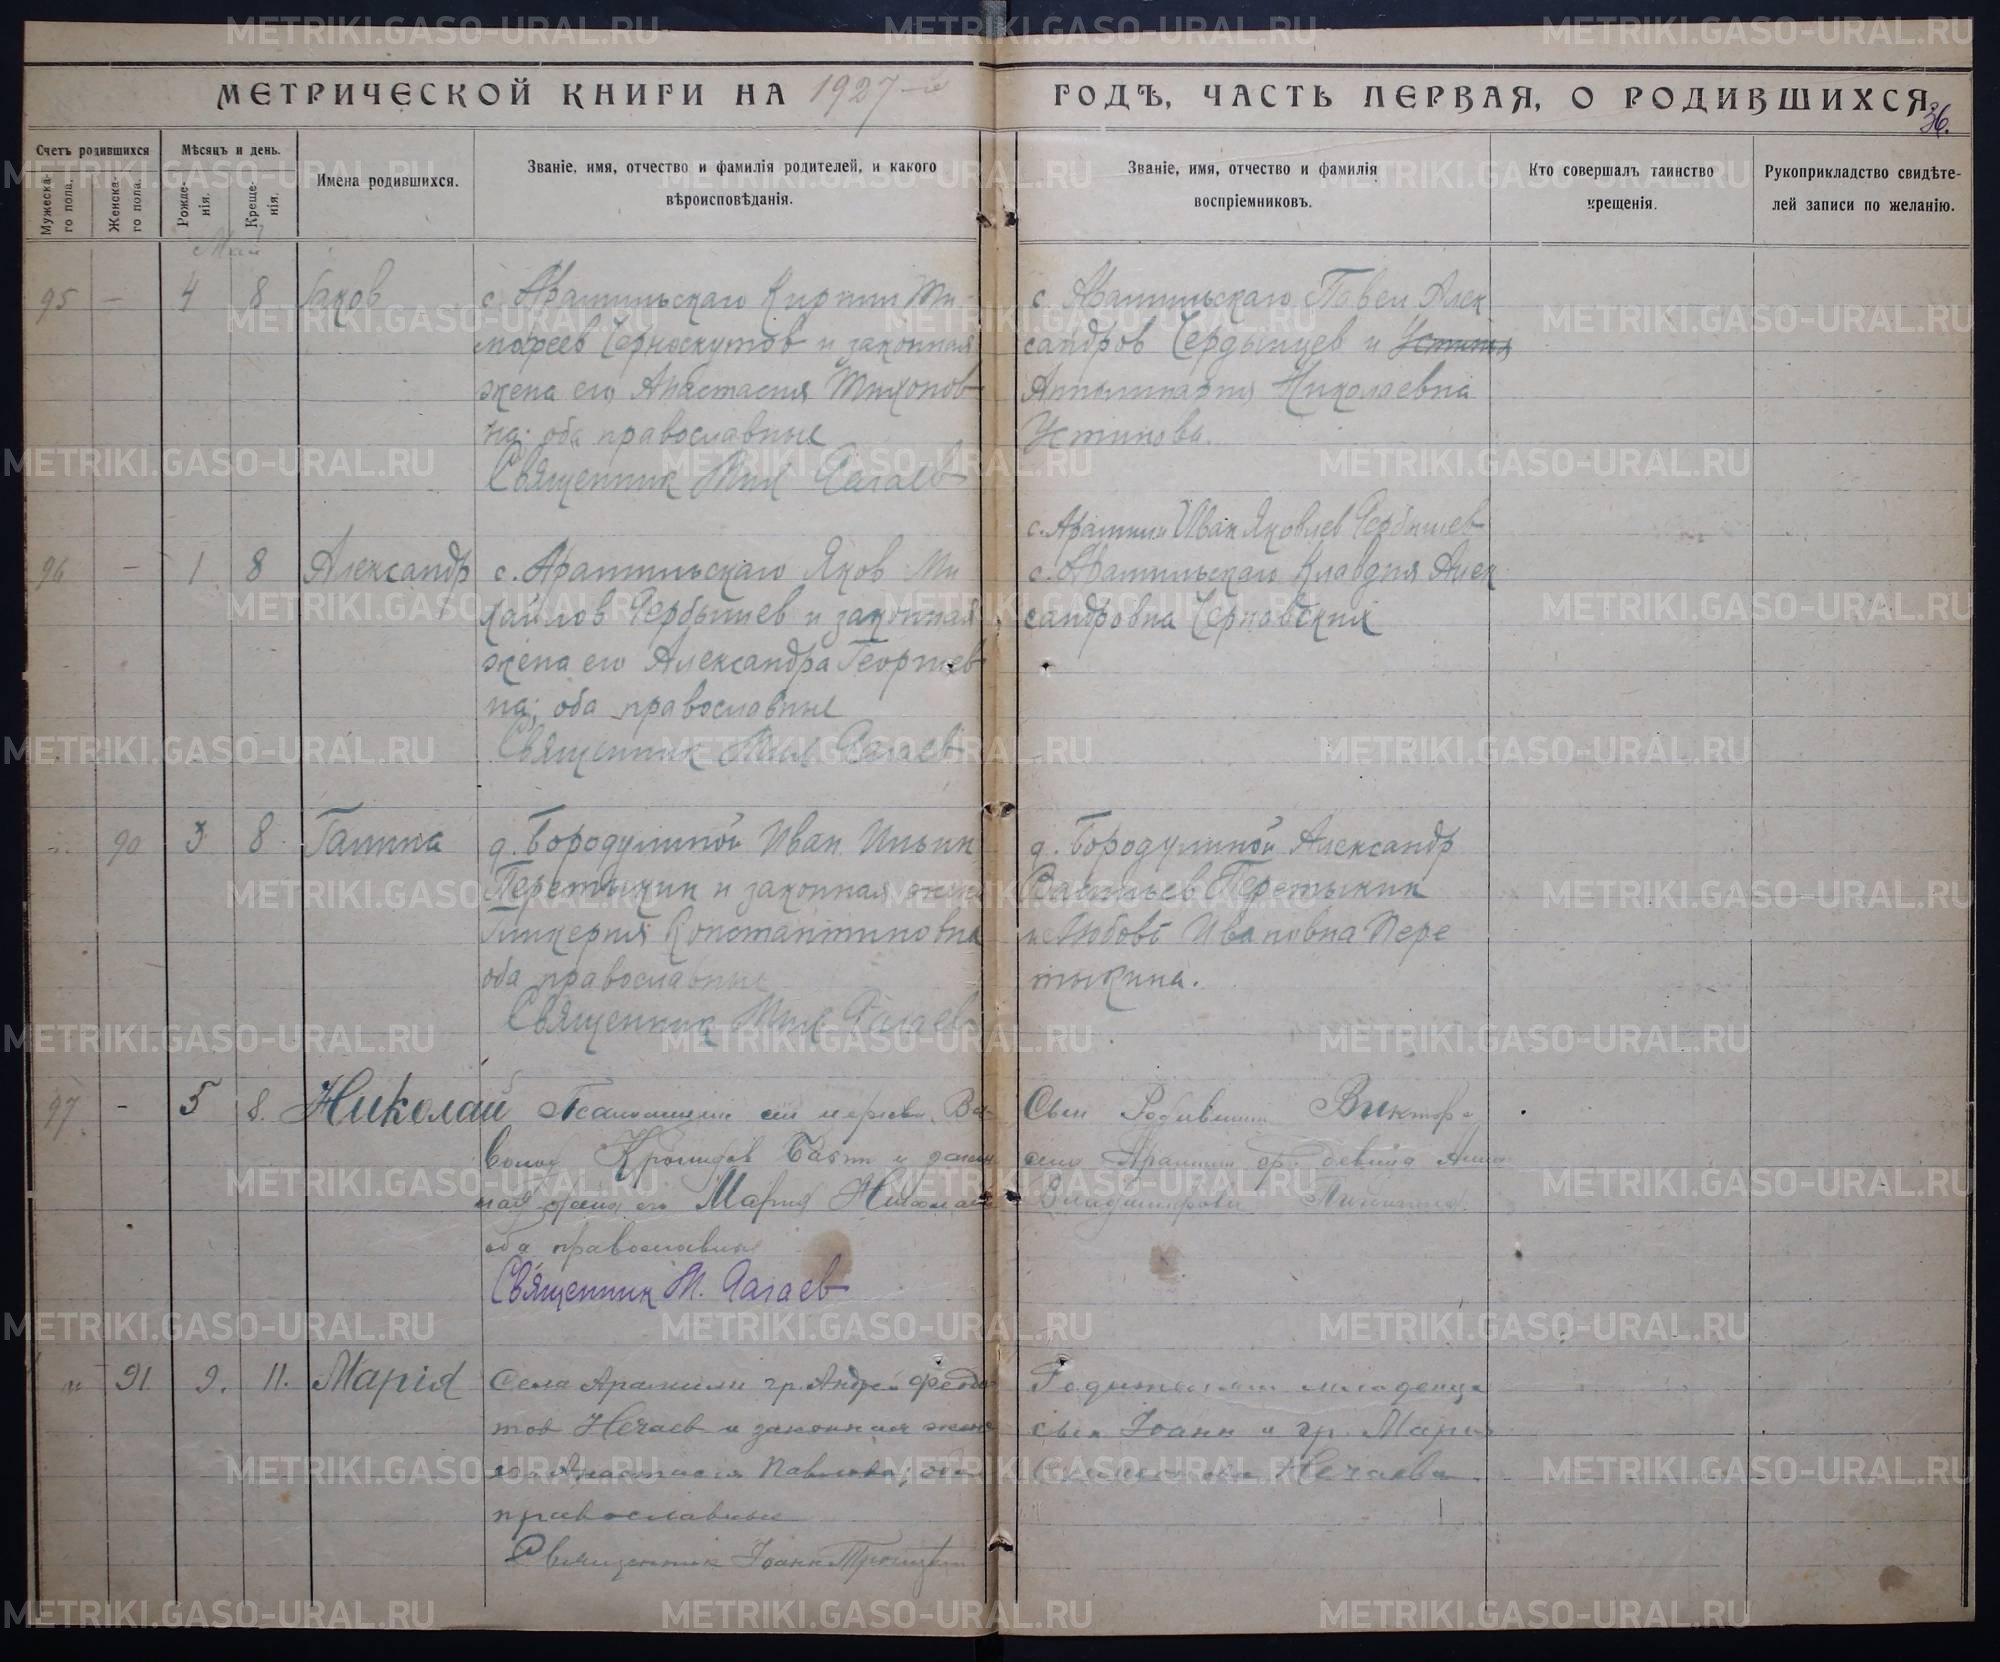 МЕТРИЧЕСКОЙ КНИГИ НА 1927-й ГОДѢ, ЧАСТЬ ПЕРВАЯ, О РОДИВШИХСЯ
36.
Счетъ родившихся
Мужеска-го пола.
Женска-го пола.
Мѣсяцъ и день.
Рожде-нія.
Креще-нія.
Имена родившихся.
Званіе, имя, отчество и фамилія родителей, и какого
вѣроисповѣданія.
Званіе, имя, отчество и фамилія
воспріемниковъ.
Кто совершалъ таинство
крещенія.
Рукоприкладство свидѣте-
лей записи по желанію.
Май
95 - 4 8 Іаков
с. Арамильскаго Кирилл Ти-
мофеев Черноскутов и законная
жена его Анастасия Тихонов-
на; оба православные
Священник Мих Рагаев
с. Арамильскаго Павел Алек
сандров Чердынцев и
Апполинария Николаевна
Устинова.
96 - 1 8 Александр
с. Арамильскаго Яков Ми
хайлов Щербышев и законная
жена его Александра Георгиев
на; оба православные
Священник Мих Рагаев
с. Арамили Иван Яковлев
с. Арамильскаго Клавдия Алек
сандровна Чернавских
90 3 8 Галина
д. Бородулиной Иван Ильин
Перетыкин и законная жена
Гликерия Константиновна
оба православные
Священник Мих Рагаев
д. Бородулиной Александр
Васильев Перетыкин
и Любовь Ивановна Пере
тыкина.
97 - 5 8. Николай
Псаломщик сей церкви
и закон
ная жена его Мария Николаев
оба православные
Священник М. Рагаев
Сын Виктор и
села Арамили гр. девица Анна
Владимировна
91 9. 11. Марія
Села Арамили гр. Андрей Федо
тов Нечаев и законная жена
его Анастасия Павлова, оба
православные
Священник Іоанн
Родительский младенца
сын Іоанн и гр. Мария
Нечаева
METRIKI.GASO-URAL.RU